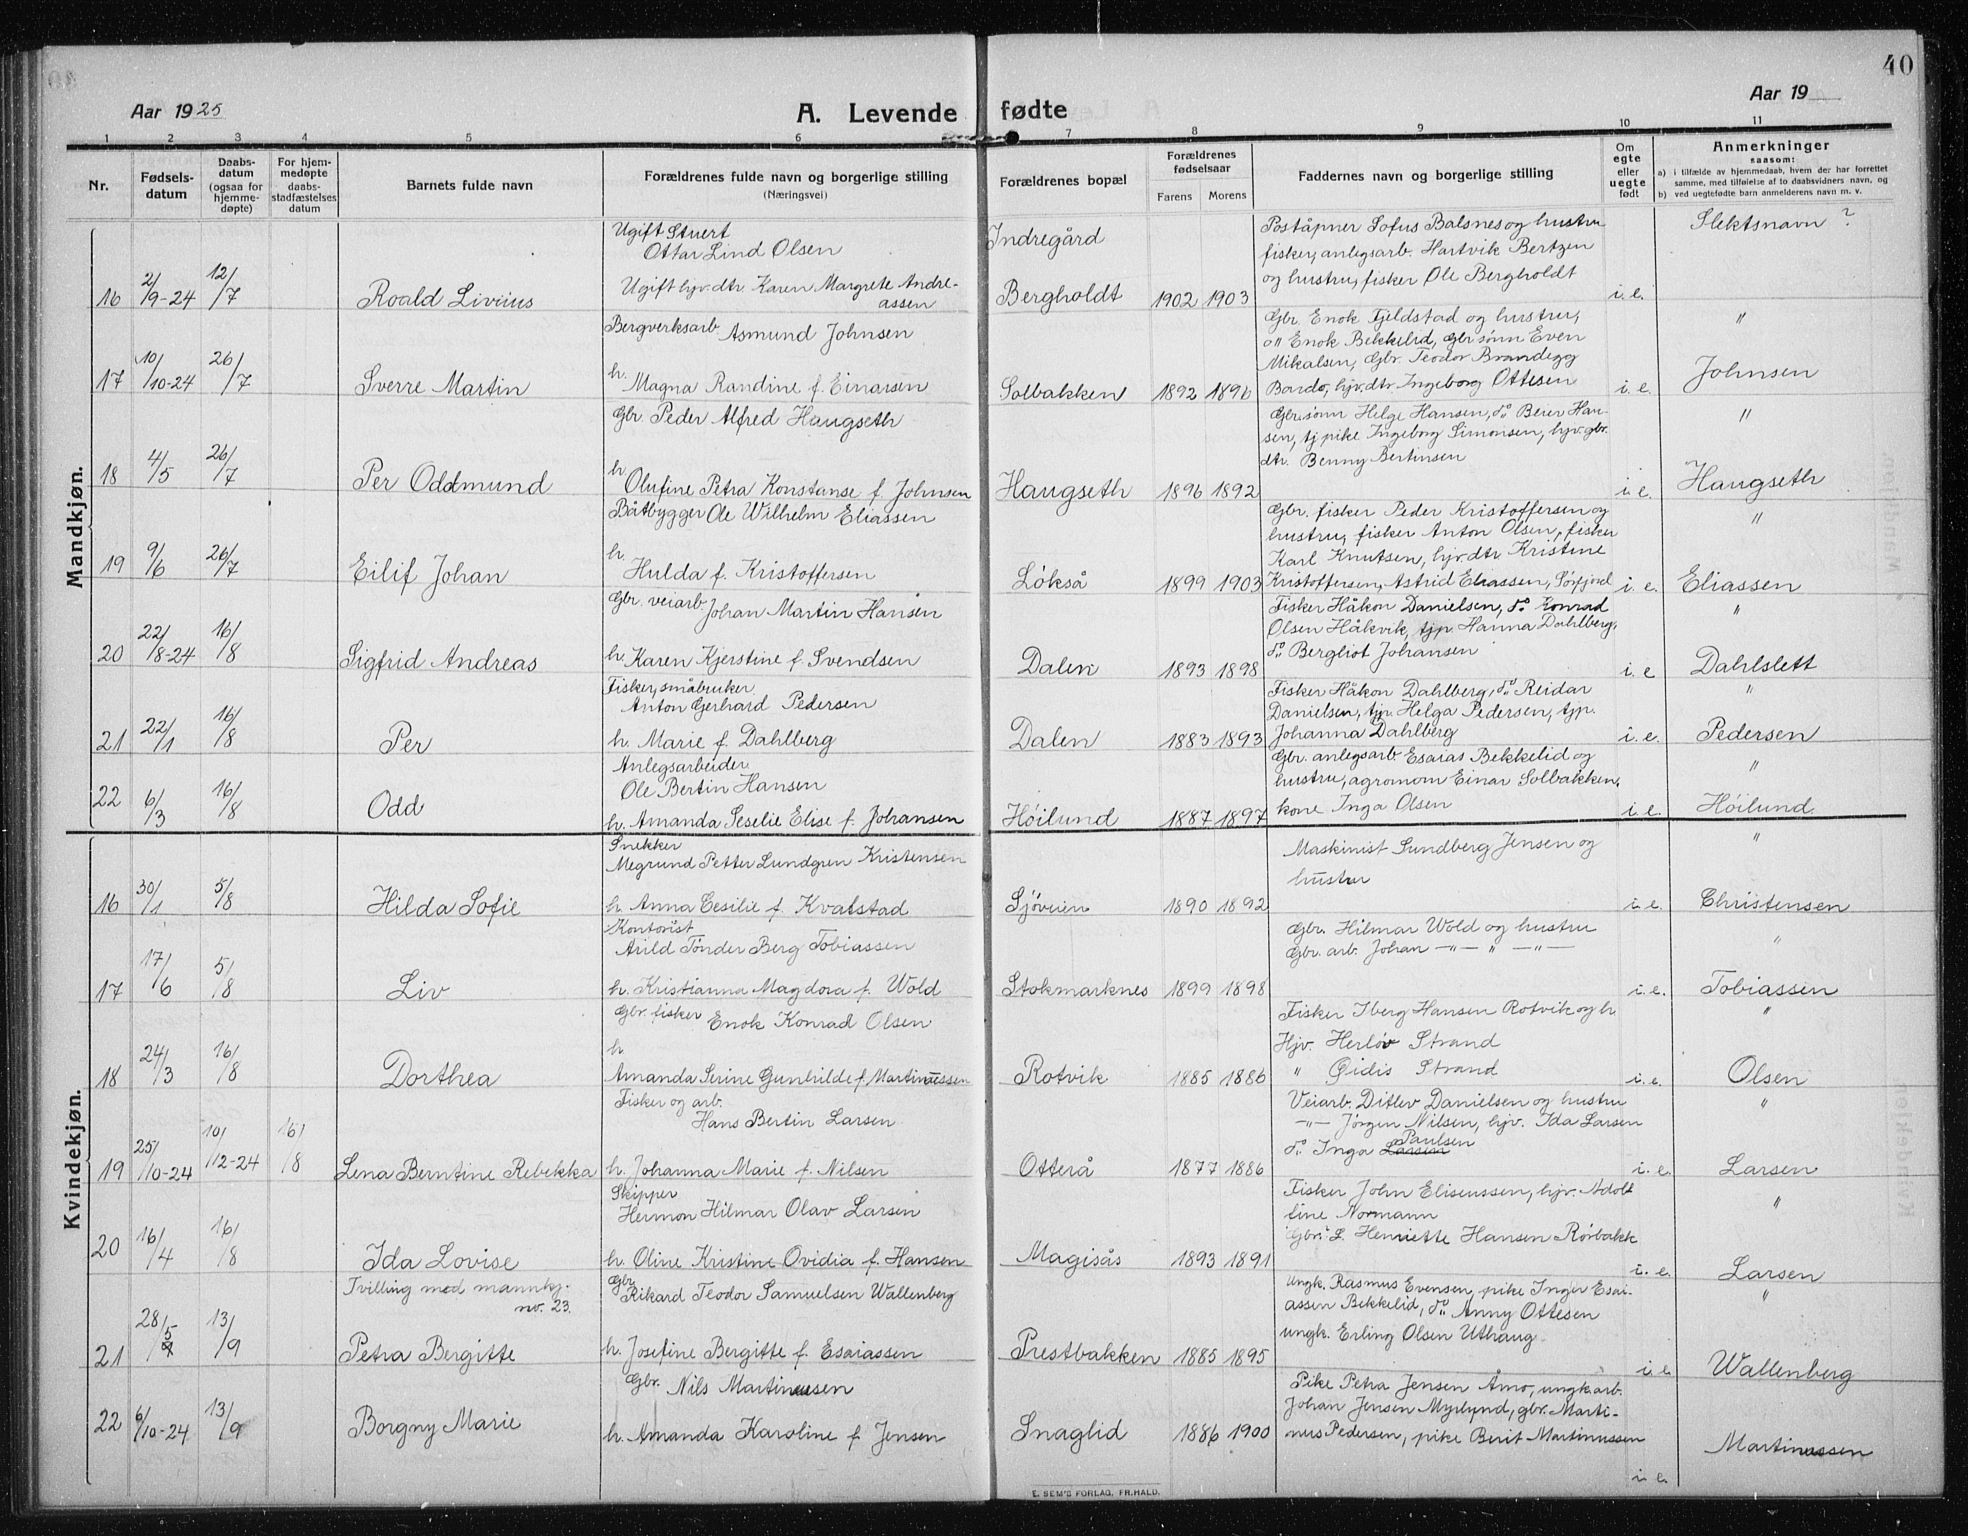 40
Aar 1925
A. Levende fødte
Aar 19
1 2 3 4 5 6 7 8 9 10 11
Nr.
Fødsels-
datum
Daabs-
datum
(ogsaa for
hjemme-
døpte)
For hjem-
medøpte
daabs-
stadfæstelses
datum
Barnets fulde navn
Forældrenes fulde navn og borgerlige stilling
(Næringsvei)
Forældrenes bopæl
Forældrenes
fødselsaar
Farens Morens
Faddernes navn og borgerlige stilling
Om
egte
eller
uegte
født
Anmerkninger
saasom:
a) i tilfælde av hjemmedaab, hvem der har forrettet
samme, med tilføielse af to daabsvidners navn, og
b) ved uegtefødte barn anmelderens navn m. v.
Mandkjøn.
16 2/9-24 12/7 Roald Livius
Ugift Stuert
Ottar Lind Olsen
Ugift hjv. dtr. Karen Margrete Andre-
assen
Indregård
Bergholdt 1902 1903
Poståpner Sofus Balsnes og hustru
fisker, anlegsarb. Hartvik Bertzen
og hustru, fisker Ole Bergholdt
i. e.
Slektsnavn ?
17 10/10-24 26/7 Sverre Martin
Bergverksarb. Asmund Johnsen
h.
Magna Randine f. Einarsen
Solbakken 1892 1896
Gbr. Enok Fjeldstad og hustru,
o " Enok Bekkelid, Gbr sønn Even
Mikalsen, Gbr. Teodor Brandegg
Bardo, hjv. dtr Ingeborg Ottesen
i. e.
"
Johnsen
18 4/5 26/7 Per Oddmund
Gbr. Peder Alfred Haugseth
h.
Olufine Petra Konstanse f. Johnsen
Haugseth 1896 1892
Gbr. sønn Helge Hansen, do. Beier Han-
sen, tj pike Ingeborg Simonsen, hjv. gbr.
dtr. Benny Bertinsen
i. e.
"
Haugseth
19 9/6 26/7 Eilif Johan
Båtbygger Ole Wilhelm Eliassen
h.
Hulda f. Kristoffersen
Løkså 1899 1903
Gbr. fisker Peder Kristoffersen og
hustru, fisker Anton Olsen, fisker
Karl Knutsen, hjv. dtr Kristine
Kristoffersen, Astrid Eliassen, Sørfjord
i. e.
"
Eliassen
20 22/8-24 16/8 Sigfrid Andreas
Gbr. veiarb. Johan Martin Hansen
h. Karen Kjerstine f. Svendsen
Dalen 1893 1898
Fisker Håkon Danielsen, do. Konrad
Olsen Håkvik, tjp. Hanna Dahlberg,
do. Bergliot Johansen
i. e
"
Dahlslett
21 22/1 16/8 Per
Fisker, småbruker
Anton Gerhard Pedersen
h. Marie f. Dahlberg
Dalen 1883 1893
Fisker Håkon Dahlberg, do. Reidar
Danielsen, tjp. Helga Pedersen, tjp.
Johanna Dahlberg
i. e.
"
Pedersen
22 6/3 16/8 Odd
Anlegsarbeider
Ole Bertin Hansen
h. Amanda Seselie Elise f. Johansen
Høilund 1887 1897
Gbr. anlegsarb. Esaias Bekkelid og
hustru, agromom Einar Solbakken,
kone Inga Olsen
i. e.
"
Høilund
Kvindekjøn.
16 30/1 5/8 Hilda Sofie
Snekker
Megrund Petter Lundgren Kristensen
h. Anna Cesilie f. Kvalstad
Sjøveien 1890 1892
Maskinist Sundberg Jensen og
hustru
i. e.
"
Christensen
17 17/6 5/8 Liv
Kontorist
Arild Tønder Berg Tobiassen
h. Kristianna Magdora f. Wold
Stokmarknes 1899 1898
Gbr. Hilmar Wold og hustru
Gbr. arb. Johan —"— " —"—
i. e.
"
Tobiassen
18 24/3 16/8 Dorthea
Gbr. fisker Enok Konrad Olsen
h
Amanda Serine Gunhilde f. Martinussen
Rotvik 1885 1886
Fisker Iberg Hansen Rotvik og h
Hjv. Herløv Strand
" Øidis Strand
i. e.
"
Olsen
19 25/10-24 10/12-24 16/8 Lena Berntine Rebekka
Fisker og arb.
Hans Bertin Larsen
h. Johanna Marie f. Nilsen
Otterå 1877 1886
Veiarb. Ditlev Danielsen og hustru
—"— Jørgen Nilsen, hjv. Ida Larsen
do. Inga Larsen Paulsen
i. e.
"
Larsen
20 16/4 16/8 Ida Lovise
Skipper
Hermon Hilmar Olav Larsen
h. Oline Kristine Ovidia f. Hansen
Magisås 1893 1891
Fisker John Eliseussen, hjv. Adolf
tine Normann
Gbr. L. Henriette Hansen Rørbakk
i. e.
"
Larsen
21 28/5 13/9 Petra Bergitte
Tvilling med mannkj.
no. 23.
Gbr
Rikard Teodor Samuelsen Wallenberg
h. Josefine Bergitte f. Esaiassen
Prestbakken 1885 1895
Ungk. Rasmus Evensen, pike Inger Esai-
assen Bekkelid, do. Anny Ottesen
ungk. Erling Olsen Uthaug
i. e.
"
Wallenberg
22 6/10-24 13/9 Borgny Marie
Gbr. Nils Martinussen
h. Amanda Karoline f. Jensen
Snaglid 1886 1900
Pike Petra Jensen Åmo, ungk. arb.
Johan Jensen Myrlynd, gbr. Marti-
nus Pedersen, pike Berit Martinussen
i. e.
Martinussen
E. SEM'S FORLAG, FR.HALD.